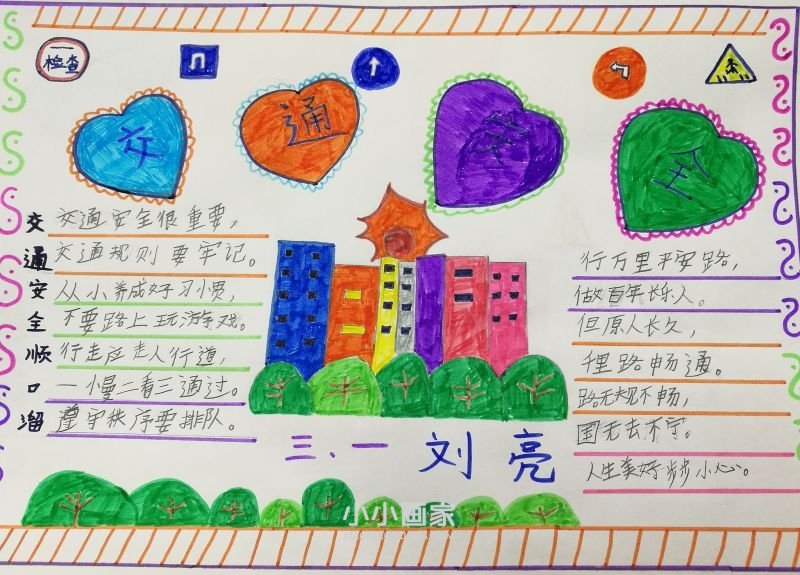 检查
交
通
安
全
交通安全顺口溜
交通安全很重要，
交通规则要牢记。
从小养成好习惯，
不要路上玩游戏。
行走应走人行道，
一慢二看三通过。
遵守秩序要排队。
行万里平安路，
做百年长乐人。
但原人长久，
理路畅通。
路无规不畅，
国无法不宁。
人生美好步步小心。
三、一 刘亮
小小画家